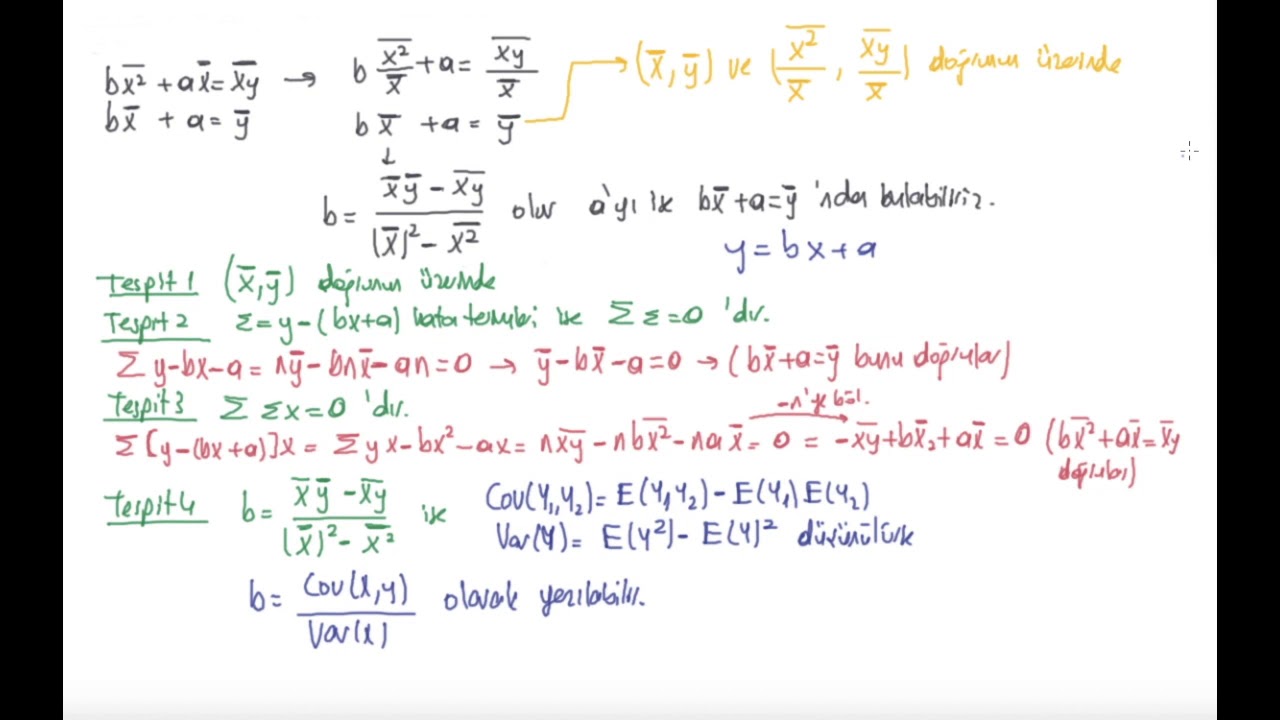 b\overline{x^2} + a\overline{x} = \overline{xy} → b \frac{\overline{x^2}}{\overline{x}} + a = \frac{\overline{xy}}{\overline{x}}
b\overline{x} + a = \overline{y}
b \overline{x} + a = \overline{y} → (\overline{x}, \overline{y}) ve (\frac{\overline{x^2}}{\overline{x}}, \frac{\overline{xy}}{\overline{x}}) doğrunun üzerinde
↓
b = \frac{\overline{x}\overline{y} - \overline{xy}}{(\overline{x})^2 - \overline{x^2}} olur a'yı ise b\overline{x} + a = \overline{y} 'ndan bulabiliriz.
y = bx + a
Tespit 1 (\overline{x}, \overline{y}) doğrunun üzerinde
Tespit 2 ε = y - (bx + a) hata terimi ise Σ ε = 0 'dır.
Σ y - bx - a = n\overline{y} - bn\overline{x} - an = 0 → \overline{y} - b\overline{x} - a = 0 → (b\overline{x} + a = \overline{y} bunu doğrular)
Tespit 3 Σ εx = 0 'dır.
-n'ye böl.
Σ [y - (bx + a)]x = Σ yx - bx^2 - ax = n\overline{xy} - nb\overline{x^2} - na\overline{x} = 0 = -\overline{xy} + b\overline{x}_2 + a\overline{x} = 0 (b\overline{x^2} + a\overline{x} = \overline{x}y
doğrular)
Tespit 4 b = \frac{\overline{x}\overline{y} - \overline{xy}}{(\overline{x})^2 - \overline{x^2}} ise Cov(Y_1, Y_2) = E(Y_1Y_2) - E(Y_1)E(Y_2)
Var(Y) = E(Y^2) - E(Y)^2 düşünülürse
b = \frac{Cov(x, y)}{Var(x)} olarak yazılabilir.